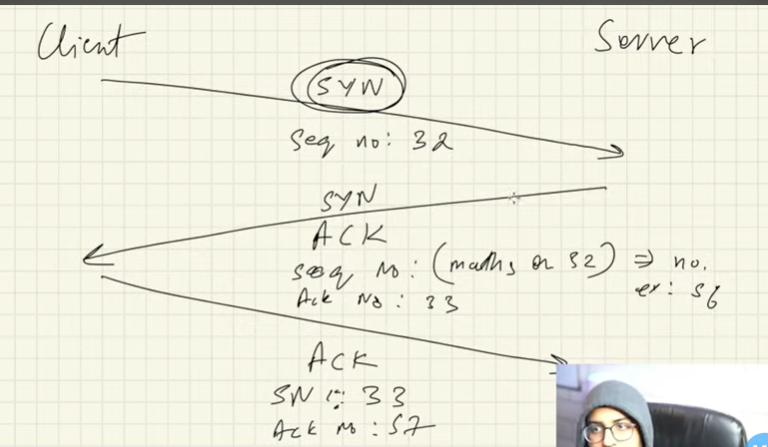 Client
Server
SYN
Seq no: 32
SYN
ACK
Seq No: (maths on 32) ⇒ no.
ex: 56
Ack No: 33
ACK
SN : 33
Ack No: 57